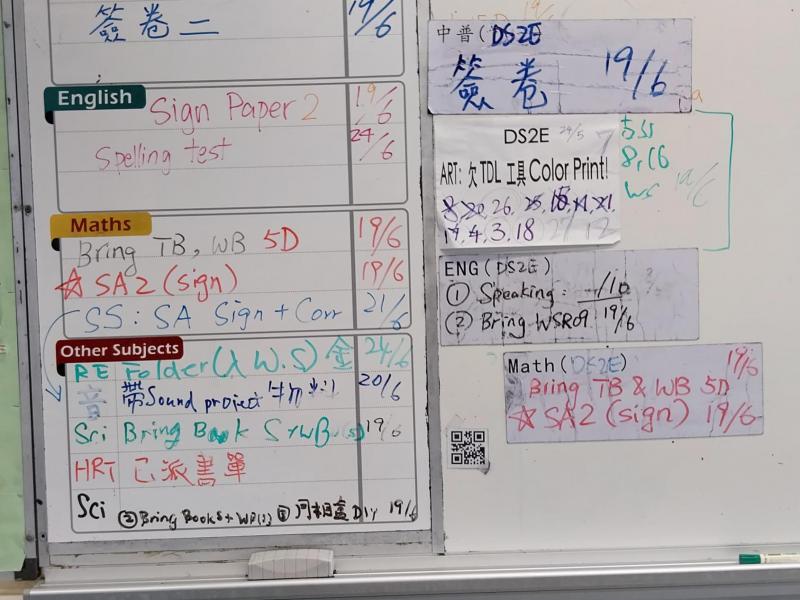 簽卷二 19/6
English
Sign Paper 2 19/6
Spelling test 24/6
Maths
Bring TB, WB 5D 19/6
☆ SA2 (sign) 19/6
SS: SA Sign + Corr 21/6
Other Subjects
RE Folder (入W.S) 金 24/6
音 帶Sound project 20/6
Sci Bring Book 19/6
HRT 已派書單
Sci ② Bring Books + DIY 19/6
中普 (DS2E
簽卷 19/6
DS2E 24/5
ART: 欠 TDL 工具 Color Print!
8, 20, 26, 25,
19, 4, 3, 18
ENG (DS2E)
① Speaking: /10
② Bring WSR09. 19/6
Math (DS2E) 19/6
Bring TB & WB 5D
☆ SA2 (sign) 19/6